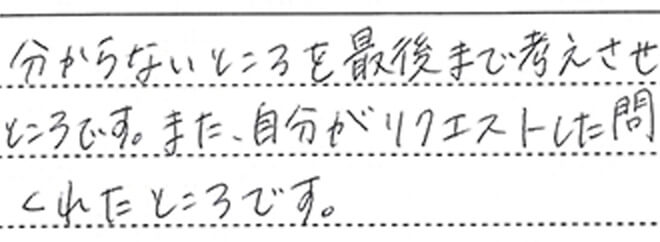 分からないところを最後まで考えさせ
ところです。また、自分がリクエストした問
くれたところです。